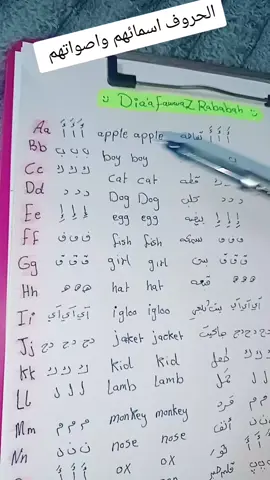 الحروف اسمائهم واصواتهم
Dia'a Fawwaz Rababah
Aa أ أ أ apple apple تفاحة أ أ أ
Bb ب ب ب boy boy
Cc ك ك ك cat cat قطه
Dd د د د Dog Dog كلب د د د
Ee إ إ إ egg egg بيضه إ إ إ
Ff ف ف ف fish fish سمكه ف ف ف
Gg ق ق ق girl girl بنت ق ق ق
Hh ه ه ه hat hat قبعه ه ه ه
Ii آي آي آي igloo igloo آي آي آي
Jj دج دج دج jaket jacket جاكيت دج دج دج
Kk ك ك ك Kid Kid طفل ك ك ك
Ll ل ل ل Lamb Lamb ل ل ل
Mm م م م monkey monkey قرد م م م
Nn ن ن ن nose nose أنف ن ن ن
أ أ أ ox ox ثور أ أ أ